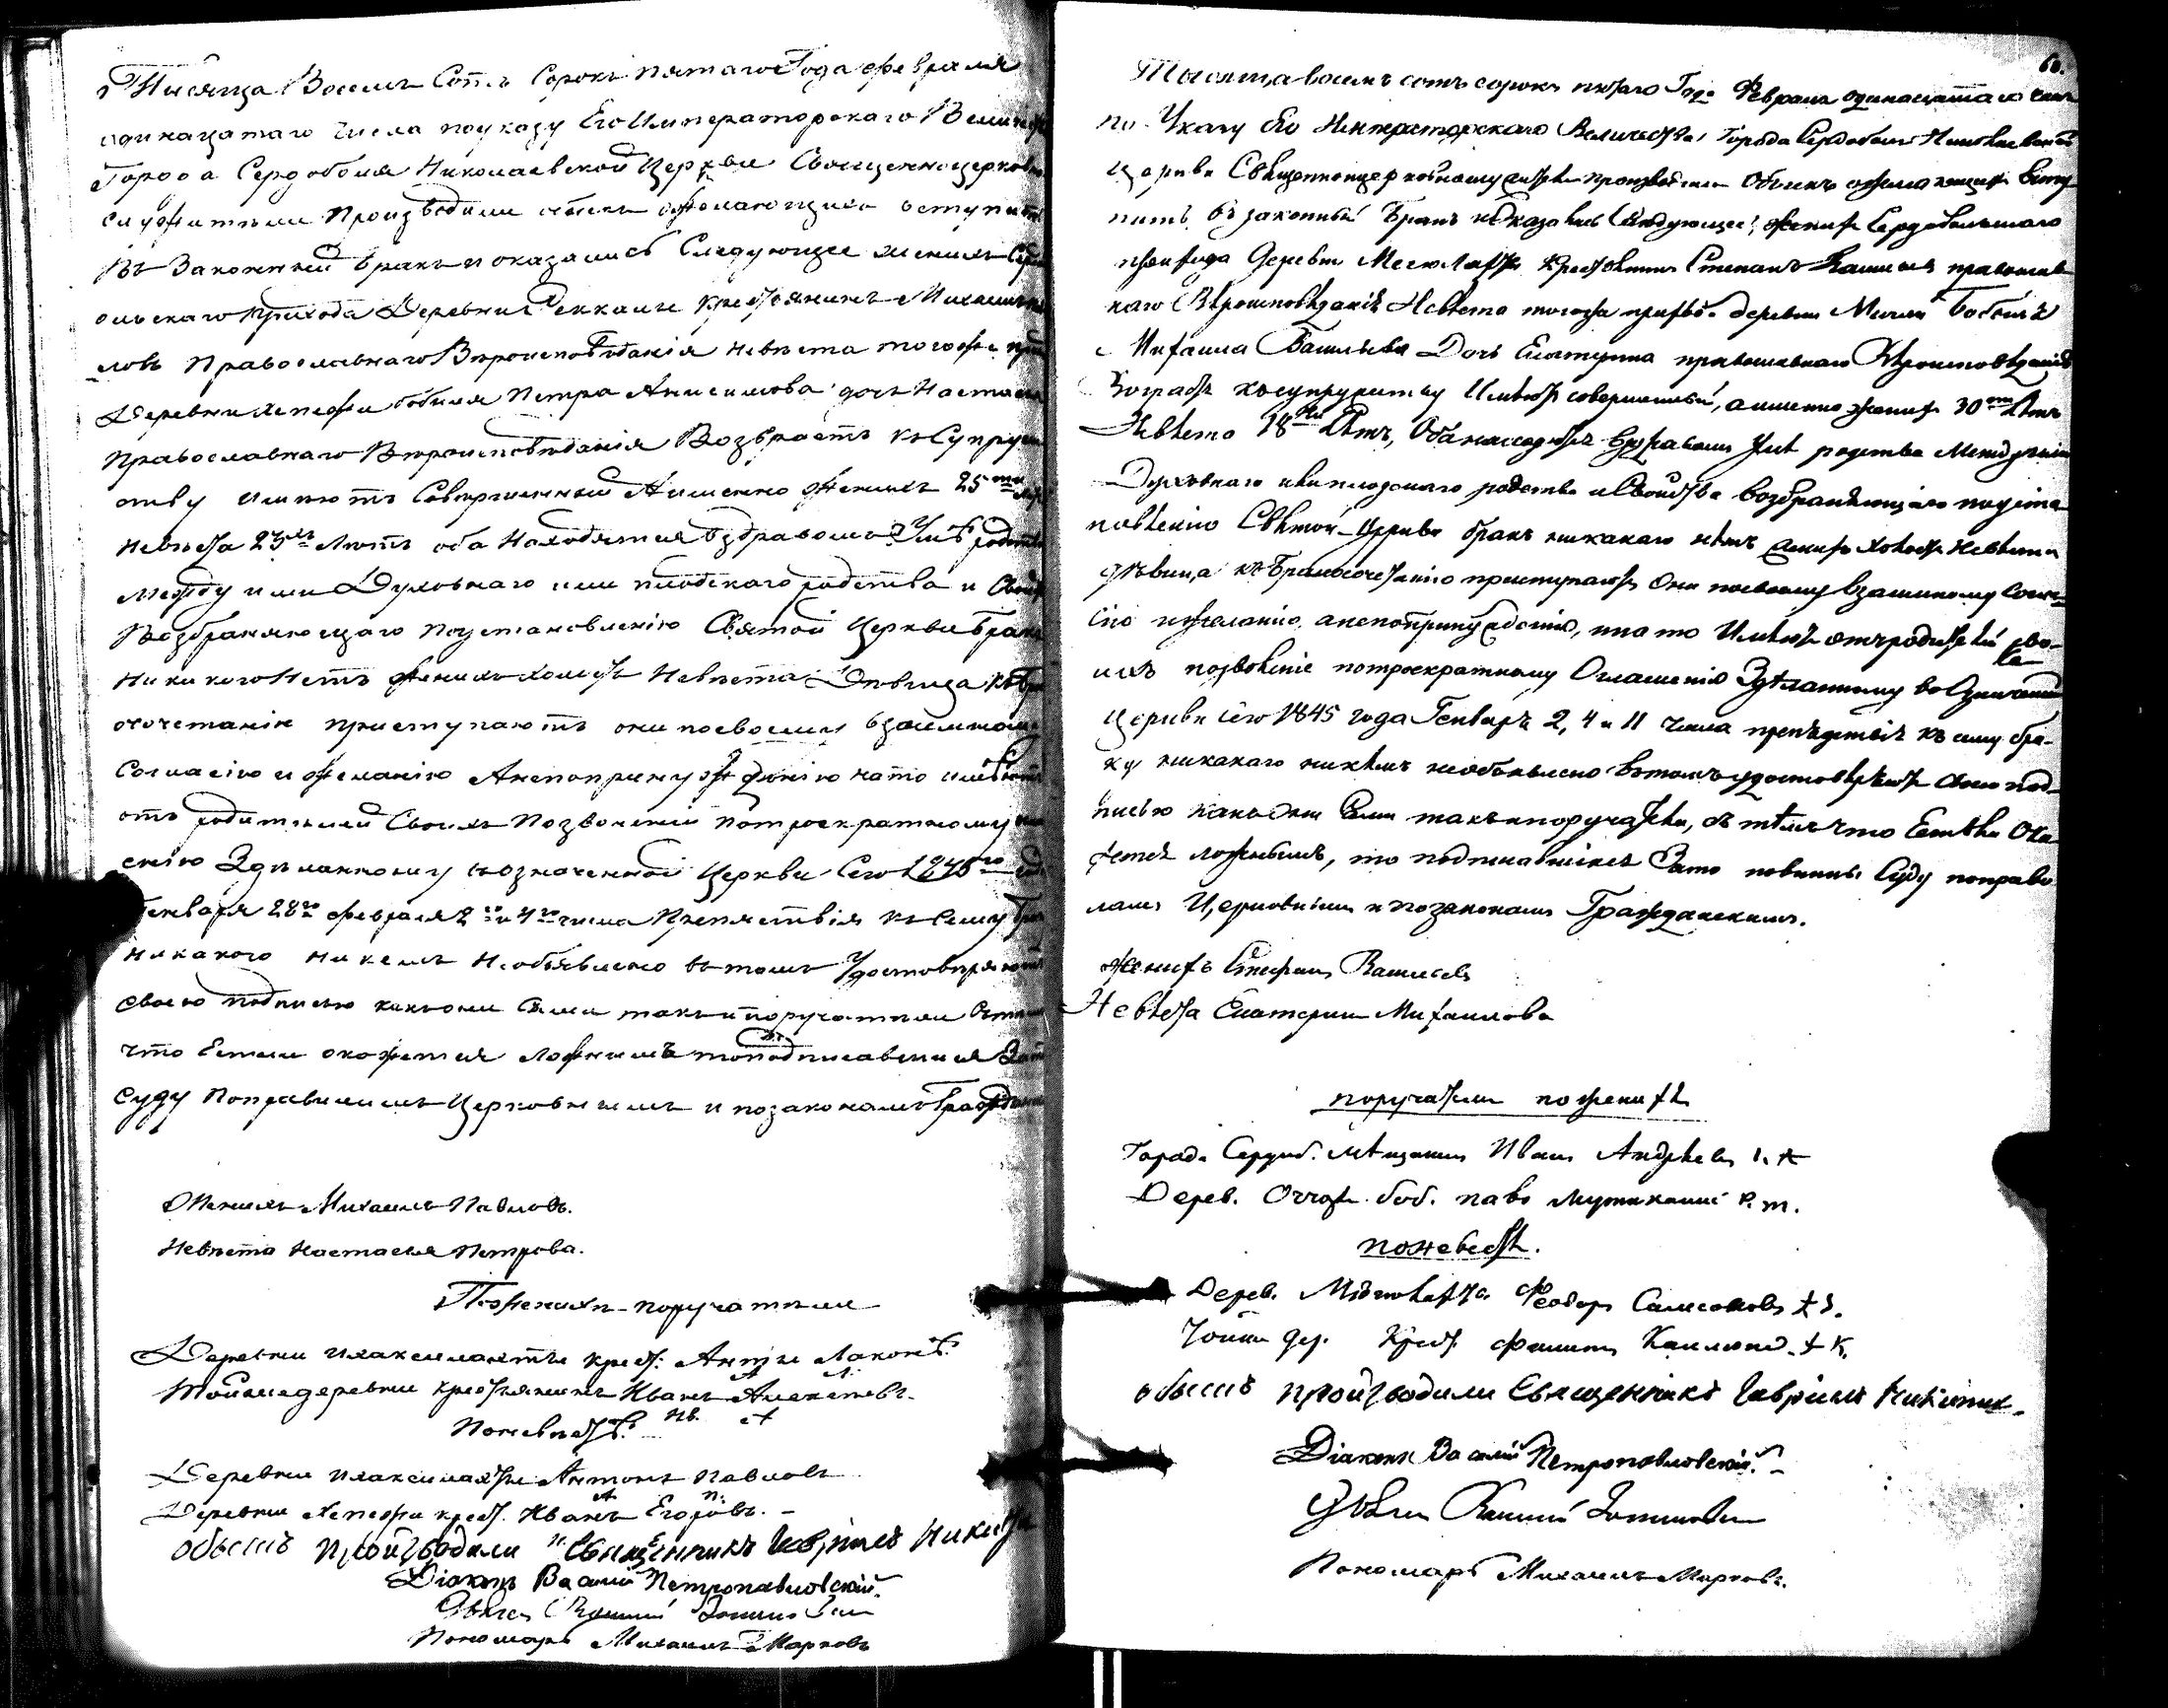 Тысяща Восемъ Сотъ Сорокъ пятаго Года февраля
одинацатаго числа по указу Его Императорскаго
Города Сердоболя Николаевской Церкви
служители производили обыскъ о желающихъ вступить
въ Законный бракъ и оказалось Следующее женихъ
ольскаго прихода Деревни крестьянинъ Михаилъ
ловъ Православнаго Вероисповѣданія невѣста тогоже
Деревни бобыля Петра Анисимова дочь
Православнаго Вѣроисповѣданія Возрастъ къ Супруже
ству имѣютъ Совершенный Аименно Женихъ 25ти
невѣста 23хъ Лѣтъ оба находятся в здравомъ Умѣ
между ими Духовнаго или плодскаго родства и
Возбраняющаго по установленію Святой Церкви бракъ
никакого нетъ женихъ холостъ Невѣста Дѣвица
сочетанію приступаютъ они по своему взаимному
Согласію и желанію Анепопринужденію на то имѣютъ
отъ родителей Своихъ позволеніи по троекратному
енію Здѣланному въ означенной Церкви Сего 1845го
Генваря 28го февраля 2го и 4го числа Препятствія къ Сему
никакого никемъ Необъявлено въ томъ Удостовѣряютъ
своею подписью какъ они Сами такъ и поручатели
что Естьли окажется ложнымъ то подписавшися
суду по правиламъ Церковнымъ и по законамъ
Женихъ Михаилъ Павловъ.
Невѣста Настасья Петрова.
По Женихѣ поручатели
Деревни крест:
Тойже деревни крестьянинъ Иванъ Алексѣевъ.
По невѣстѣ.
Деревни Антонъ Павловъ
Деревни крест. Иванъ Егоровъ.
обыскъ производили Священникъ Гавріилъ
Діаконъ Василій Петропавловскій.
Дьячекъ
Пономарь Михаилъ Марковъ
60.
Тысяща восемъ сотъ сорокъ пятаго Года Февраля одинацатаго числа
по Указу Его Императорскаго Величества, Города Сердоболя Николаевской
церкви Священноцерковнослужители производили Обыскъ о желающихъ всту
пить въ законный Бракъ и Оказалось Слѣдующее, женихъ Сердобольскаго
прихода Деревни крестьянинъ Степанъ православ
наго Вѣроисповѣданія Невѣста тогоже прихода деревни бобыля
Михаила Васильева Дочь Екатерина православнаго Вѣроисповѣданія
Возрастъ къ супружеству Имѣютъ совершенный, а именно женихъ 30ти Лѣтъ
Невѣста 18ти Лѣтъ, Оба находятся въ здравомъ умѣ родства Между ими
Духовнаго или плодскаго родства и Свойства возбраняющаго по уста
новленію Святой Церкви бракъ никакаго нѣтъ женихъ холостъ Невѣста
дѣвица къ Бракосочетанію приступаютъ Они по своему взаимному Согла
сію и желанію, а не по принужденію, и на то Имѣютъ отъ родителей сво-
ихъ позволеніе по троекратному Оглашенію Здѣланному во Означенной
Церкви сего 1845 года Генваря 2, 4 и 11 числа препятствія къ сему бра-
ку никакаго никѣмъ необъявлено въ томъ удостовѣряютъ своею под-
писью какъ они Сами такъ и поручатели, съ тѣмъ что Естьли Ока
жется ложнымъ, то подписавшіися Зато повинны Суду по прави
ламъ Церковнымъ и по законамъ Гражданскимъ.
Женихъ Стефанъ Васильевъ
Невѣста Екатерина Михаилова
поручатели по женихѣ
Города Сердоб. мѣщанинъ Иванъ Андреевъ
Дерев. боб.
по невѣстѣ.
Дерев. Феодоръ
Тойже дер. Крест.
обыскъ производили Священникъ Гавріилъ
Діаконъ Василій Петропавловскій.
Дьячекъ
Пономарь Михаилъ Марковъ.